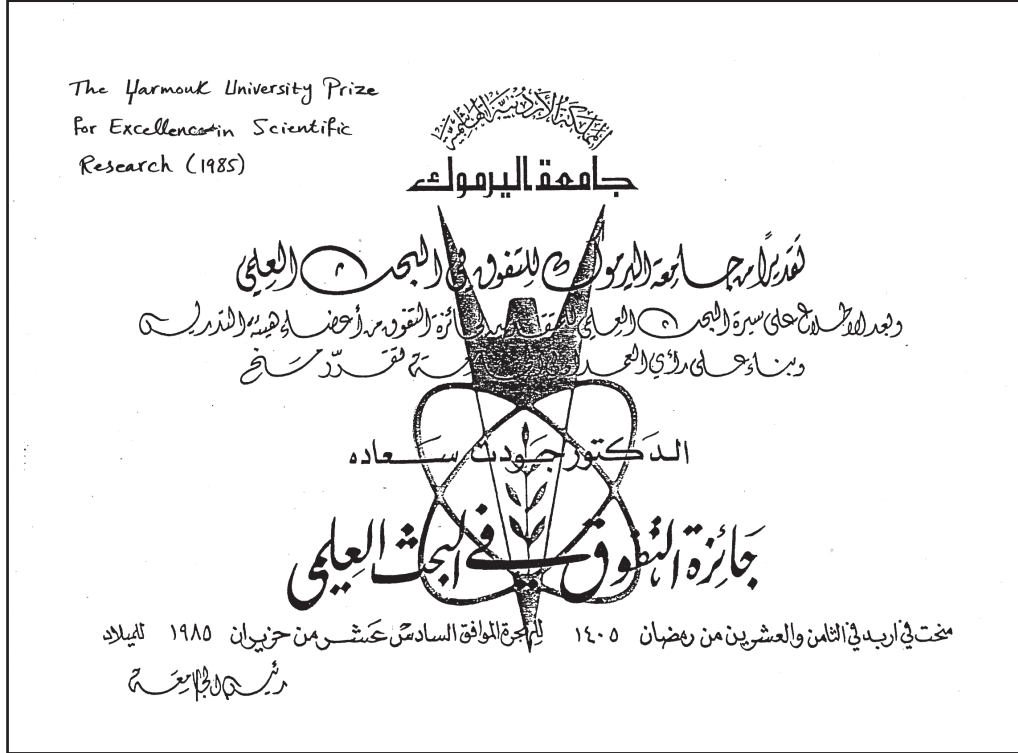 The Yarmouk University Prize
for Excellence in Scientific
Research (1985)
المملكة الأردنية الهاشمية
جامعة اليرموك
تقديرًا من جامعة اليرموك للتفوق في البحث العلمي
وبعد الاطلاع على سيرة البحث العلمي للمتقدمين لجائزة التفوق من أعضاء هيئة التدريس
وبناء على رأي العمد تقرّر منح
الدكتور جَودت سَعاده
جَائِزة التفوق في البحث العِلمي
منحت في اربد في الثامن والعشرين من رمضان ١٤٠٥ للهجرة الموافق السادس عَشر من حزيران ١٩٨٥ للميلاد
رئيس الجامِعَة